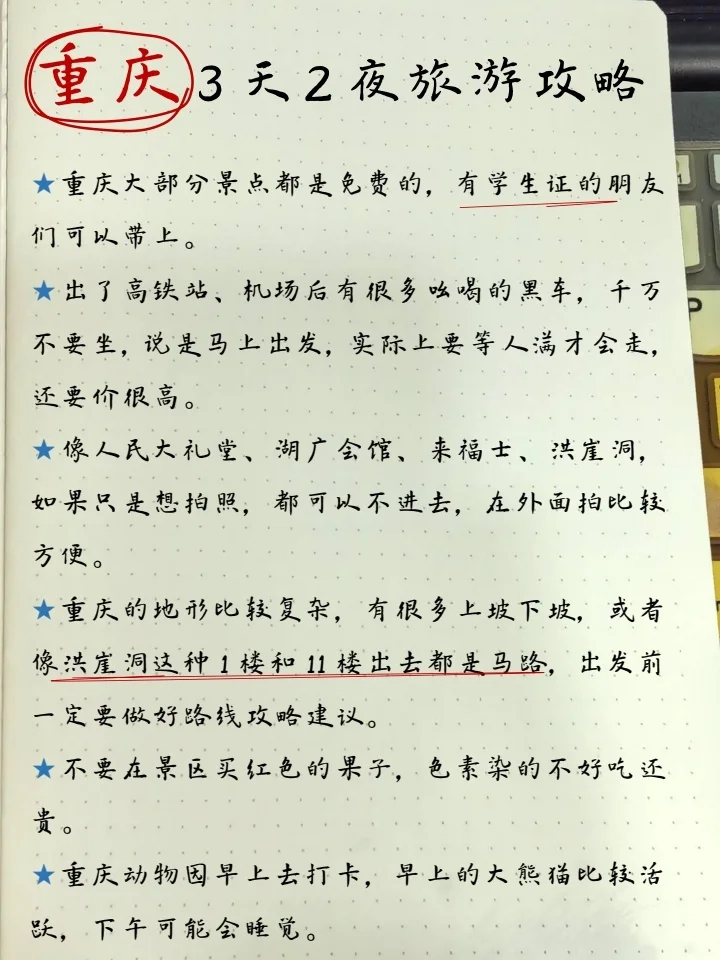 重庆3天2夜旅游攻略
★重庆大部分景点都是免费的，有学生证的朋友
们可以带上。
★出了高铁站、机场后有很多吆喝的黑车，千万
不要坐，说是马上出发，实际上要等人满才会走，
还要价很高。
★像人民大礼堂、湖广会馆、来福士、洪崖洞，
如果只是想拍照，都可以不进去，在外面拍比较
方便。
★重庆的地形比较复杂，有很多上坡下坡，或者
像洪崖洞这种1楼和11楼出去都是马路，出发前
一定要做好路线攻略建议。
★不要在景区买红色的果子，色素染的不好吃还
贵。
★重庆动物园早上去打卡，早上的大熊猫比较活
跃，下午可能会睡觉。
P